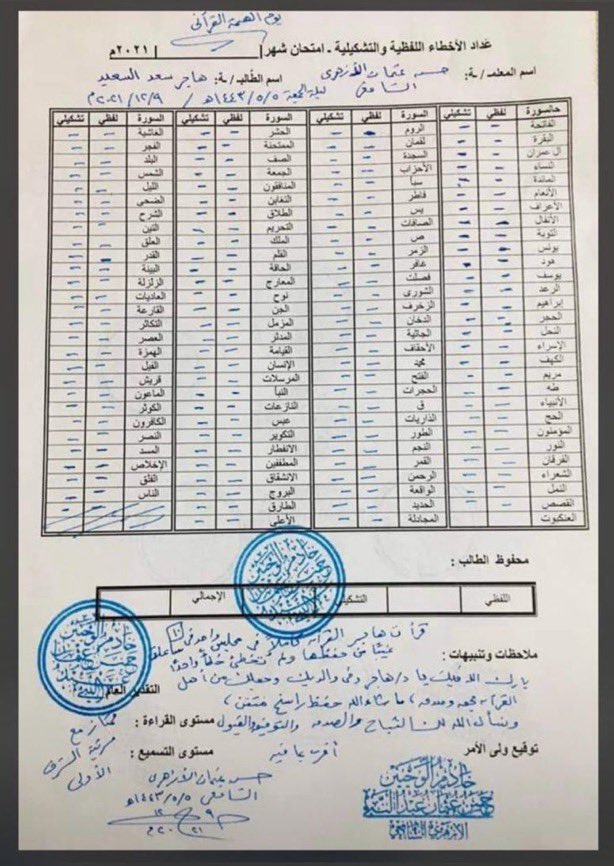 يوم الهمة القرآني
عداد الأخطاء اللفظية والتشكيلية - امتحان شهر | ٢٠٢١م
اسم المعلم ـ/ـة: حسن عثمان الأزهري الشافعي ليلة الجمعة ١٤٤٣/٥/٥هـ / ٢٠٢١/١٢/٩م اسم الطالب ـ/ـة: هاجر سعد السعيد
السورة لفظي تشكيلي السورة لفظي تشكيلي السورة لفظي تشكيلي السورة لفظي تشكيلي
الفاتحة الروم الحشر الغاشية
البقرة لقمان الممتحنة الفجر
آل عمران السجدة الصف البلد
النساء الأحزاب الجمعة الشمس
المائدة سبأ المنافقون الليل
الأنعام فاطر التغابن الضحى
الأعراف يس الطلاق الشرح
الأنفال الصافات التحريم التين
التوبة ص الملك العلق
يونس الزمر القلم القدر
هود غافر الحاقة البينة
يوسف فصلت المعارج الزلزلة
الرعد الشورى نوح العاديات
إبراهيم الزخرف الجن القارعة
الحجر الدخان المزمل التكاثر
النحل الجاثية المدثر العصر
الإسراء الأحقاف القيامة الهمزة
الكهف محمد الإنسان الفيل
مريم الفتح المرسلات قريش
طه الحجرات النبأ الماعون
الأنبياء ق النازعات الكوثر
الحج الذاريات عبس الكافرون
المؤمنون الطور التكوير النصر
النور النجم الانفطار المسد
الفرقان القمر المطففين الإخلاص
الشعراء الرحمن الانشقاق الفلق
النمل الواقعة البروج الناس
القصص الحديد الطارق
العنكبوت المجادلة الأعلى
محفوظ الطالب :
اللفظي التشكيلي الإجمالي
قرأت هاجر القرآن كاملا في مجلس واحد
ملاحظات وتنبيهات : غيبًا من حفظها ولم تخطئ خطأ واحدًا
بارك الله فيك يا د/هاجر وفي والديك وجعلك من أهل
القرآن ما شاء الله حفظ راسخ متقن
التقدير العام
ونسأل الله لنا الثبات والصدق والتوفيق والقبول
مستوى القراءة : ممتاز مع مرتبة الشرف الأولى
توقيع ولى الأمر
مستوى التسميع :
حسن عثمان الأزهري
الشافعي ١٤٤٣/٥/٥هـ
٩
١٢
٢٠٢١م
خادم الوحيين
حسن عثمان عبد النبي
الأزهري الشافعي